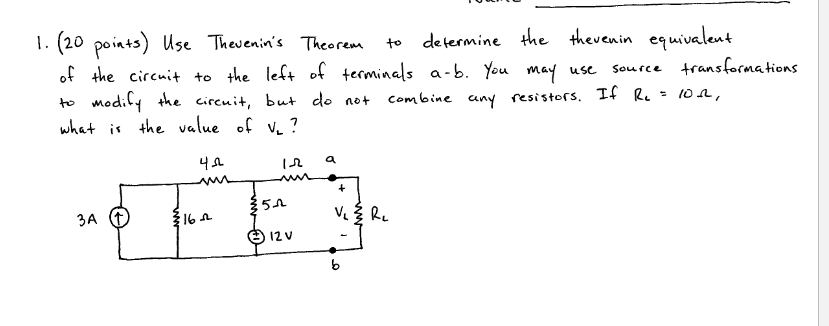 1. (20 points) Use Thevenin's Theorem to determine the thevenin equivalent
of the circuit to the left of terminals a-b. You may use source transformations
to modify the circuit, but do not combine any resistors. If RL = 10 Ω,
what is the value of VL ?
4Ω 1Ω a
3A 16 Ω 5Ω + VL RL
12 V -
b